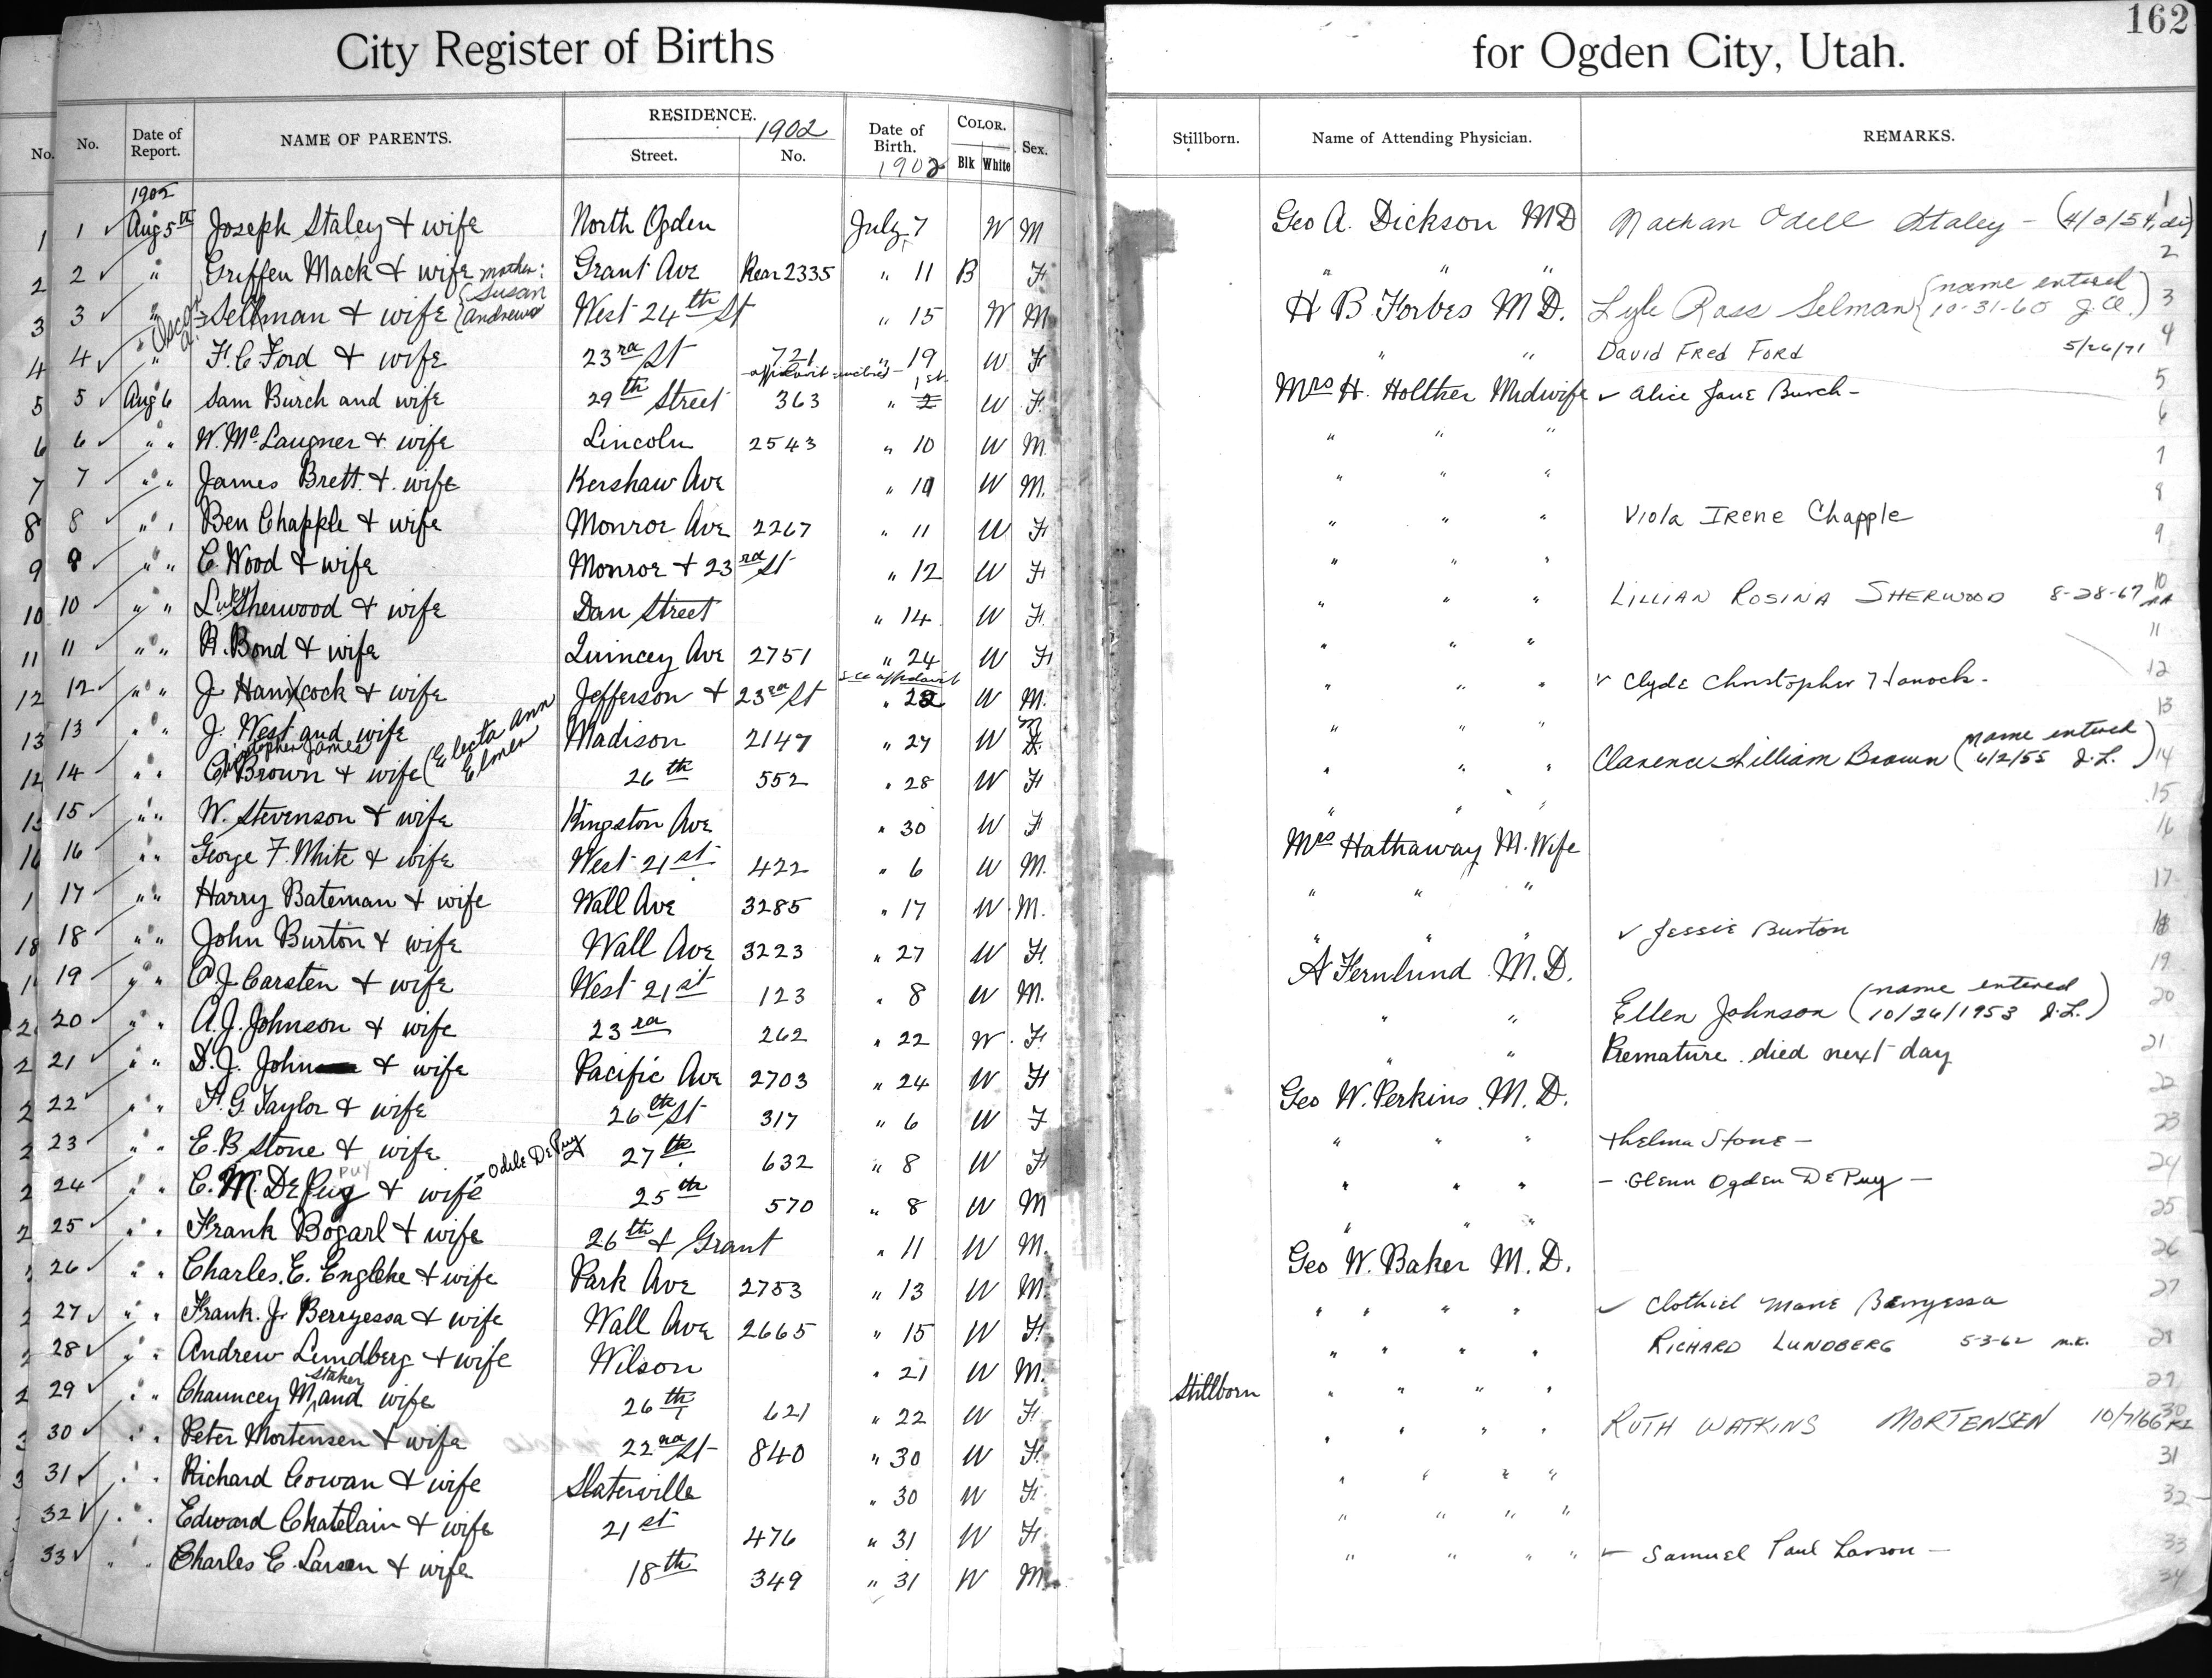 162
City Register of Births for Ogden City, Utah.
No. No. Date of Report. NAME OF PARENTS. RESIDENCE. 1902 Street. No. Date of Birth. 1902 COLOR. Blk White Sex. Stillborn. Name of Attending Physician. REMARKS.
1902
1 1 ✓ Aug 5th Joseph Staley & wife North Ogden July 7 W M Geo A. Dickson MD Nathan Odell Staley - 1
2 2 ✓ " Griffen Mack & wife Grant Ave Rear 2335 " 11 B F " " " 2
mother: Susan Andrews
3 3 ✓ " Oscar A. Sellman & wife West 24th St " 15 W M H B Forbes M D. Lyle Ross Selman (name entered 10-31-60 J.C.) 3
4 4 ✓ " F. C. Ford & wife 23rd St 721 " 19 W F " " David Fred Ford 5/26/71 4
1st
5 5 ✓ Aug 6 Sam Burch and wife 29th Street 363 " 2 W F Mrs H. Holther Midwife ✓ Alice Jane Burch - 5
6 6 ✓ " " W. McLaugner & wife Lincoln 2543 " 10 W M " " " 6
7 7 ✓ " " James Brett & wife Kershaw Ave " 10 W M. " " " 7
8 8 ✓ " " Ben Chapple & wife Monroe Ave 2267 " 11 W F " " " Viola Irene Chapple 8
9 9 ✓ " " C. Wood & wife Monroe & 23rd St " 12 W F " " " 9
10 10 ✓ " " Luke Sherwood & wife Dan Street " 14 W F " " " LILLIAN ROSINA SHERWOOD 8-28-67 10
11 11 ✓ " " H. Bond & wife Quincey Ave 2751 " 24 W F " " " 11
see affidavit
12 12 ✓ " " J. Hancock & wife Jefferson & 23rd St " 22 W M. " " " ✓ Clyde Christopher Hancock - 12
13 13 ✓ " " J. West and wife Madison 2147 " 27 W M " " " 13
Christopher James (Electa Ann Elmer
14 14 ✓ " " C. Brown & wife 26th 552 " 28 W F " " " Clarence William Brown (name entered 6/2/55 J.L.) 14
15 15 ✓ " " W. Stevenson & wife Kingston Ave " 30 W F " " " 15
16 16 ✓ " " George F. White & wife West 21st 422 " 6 W M. Mrs Hathaway M. Wife 16
1 17 ✓ " " Harry Bateman & wife Wall Ave 3285 " 17 W M. " " " 17
18 18 ✓ " " John Burton & wife Wall Ave 3223 " 27 W F. " " " ✓ Jessie Burton 18
1 19 ✓ " " P. J. Carsten & wife West 21st 123 " 8 W M. A Fernlund M.D. 19
2 20 ✓ " " A. J. Johnson & wife 23rd 262 " 22 W. F " " Ellen Johnson (name entered 10/26/1953 J.L.) 20
2 21 ✓ " " D. J. John & wife Pacific Ave 2703 " 24 W F " " Premature died next day 21
2 22 ✓ " " F. G. Taylor & wife 26th St 317 " 6 W F Geo W. Perkins M. D. 22
2 23 ✓ " " E. B Stone & wife 27th 632 " 8 W F " " " Thelma Stone - 23
2 24 ✓ " " C. M. DePuy & wife - Odile DePuy 25th 570 " 8 W M " " " - Glenn Ogden DePuy - 24
2 25 ✓ " " Frank Bogarl & wife 26th & Grant " 11 W M. " " " 25
26 ✓ " " Charles. E. Engleke & wife Park Ave 2753 " 13 W M Geo W. Baker M. D. 26
2 27 ✓ " " Frank. J. Berryessa & wife Wall Ave 2665 " 15 W F " " " " ✓ Clothiel Marie Berryessa 27
2 28 ✓ " " Andrew Lundberg & wife Wilson " 21 W M. " " " " RICHARD LUNDBERG 5-3-62 M.E. 28
2 29 ✓ " " Chauncey M. Staker and wife 26th 621 " 22 W F Stillborn " " " " 29
3 30 ✓ " " Peter Mortensen & wife 22nd St 840 " 30 W F. " " " " RUTH WATKINS MORTENSEN 10/7/66 30
3 31 ✓ " " Richard Cowan & wife Slaterville " 30 W F " " " " 31
32 ✓ " " Edward Chatelain & wife 21st 476 " 31 W F " " " " 32
33 ✓ " " Charles E. Larsen & wife 18th 349 " 31 W M. " " " " ✓ Samuel Paul Larson - 33
34